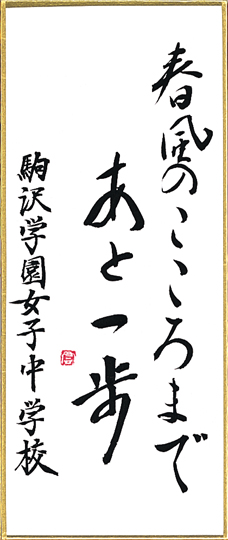 春風のこころまで
あと一歩
駒沢学園女子中学校